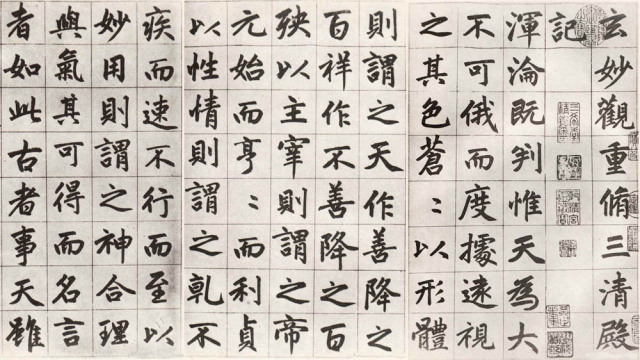 玄妙觀重脩三清殿
記
渾淪既判惟天為大
不可俄而度據遠視
之其色蒼〻以形體
則謂之天作善降之
百祥作不善降之百
殃以主宰則謂之帝
元始而亨〻而利貞
以性情則謂之乹不
疾而速不行而至以
妙用則謂之神合理
與氣其可得而名言
者如此古者事天雖